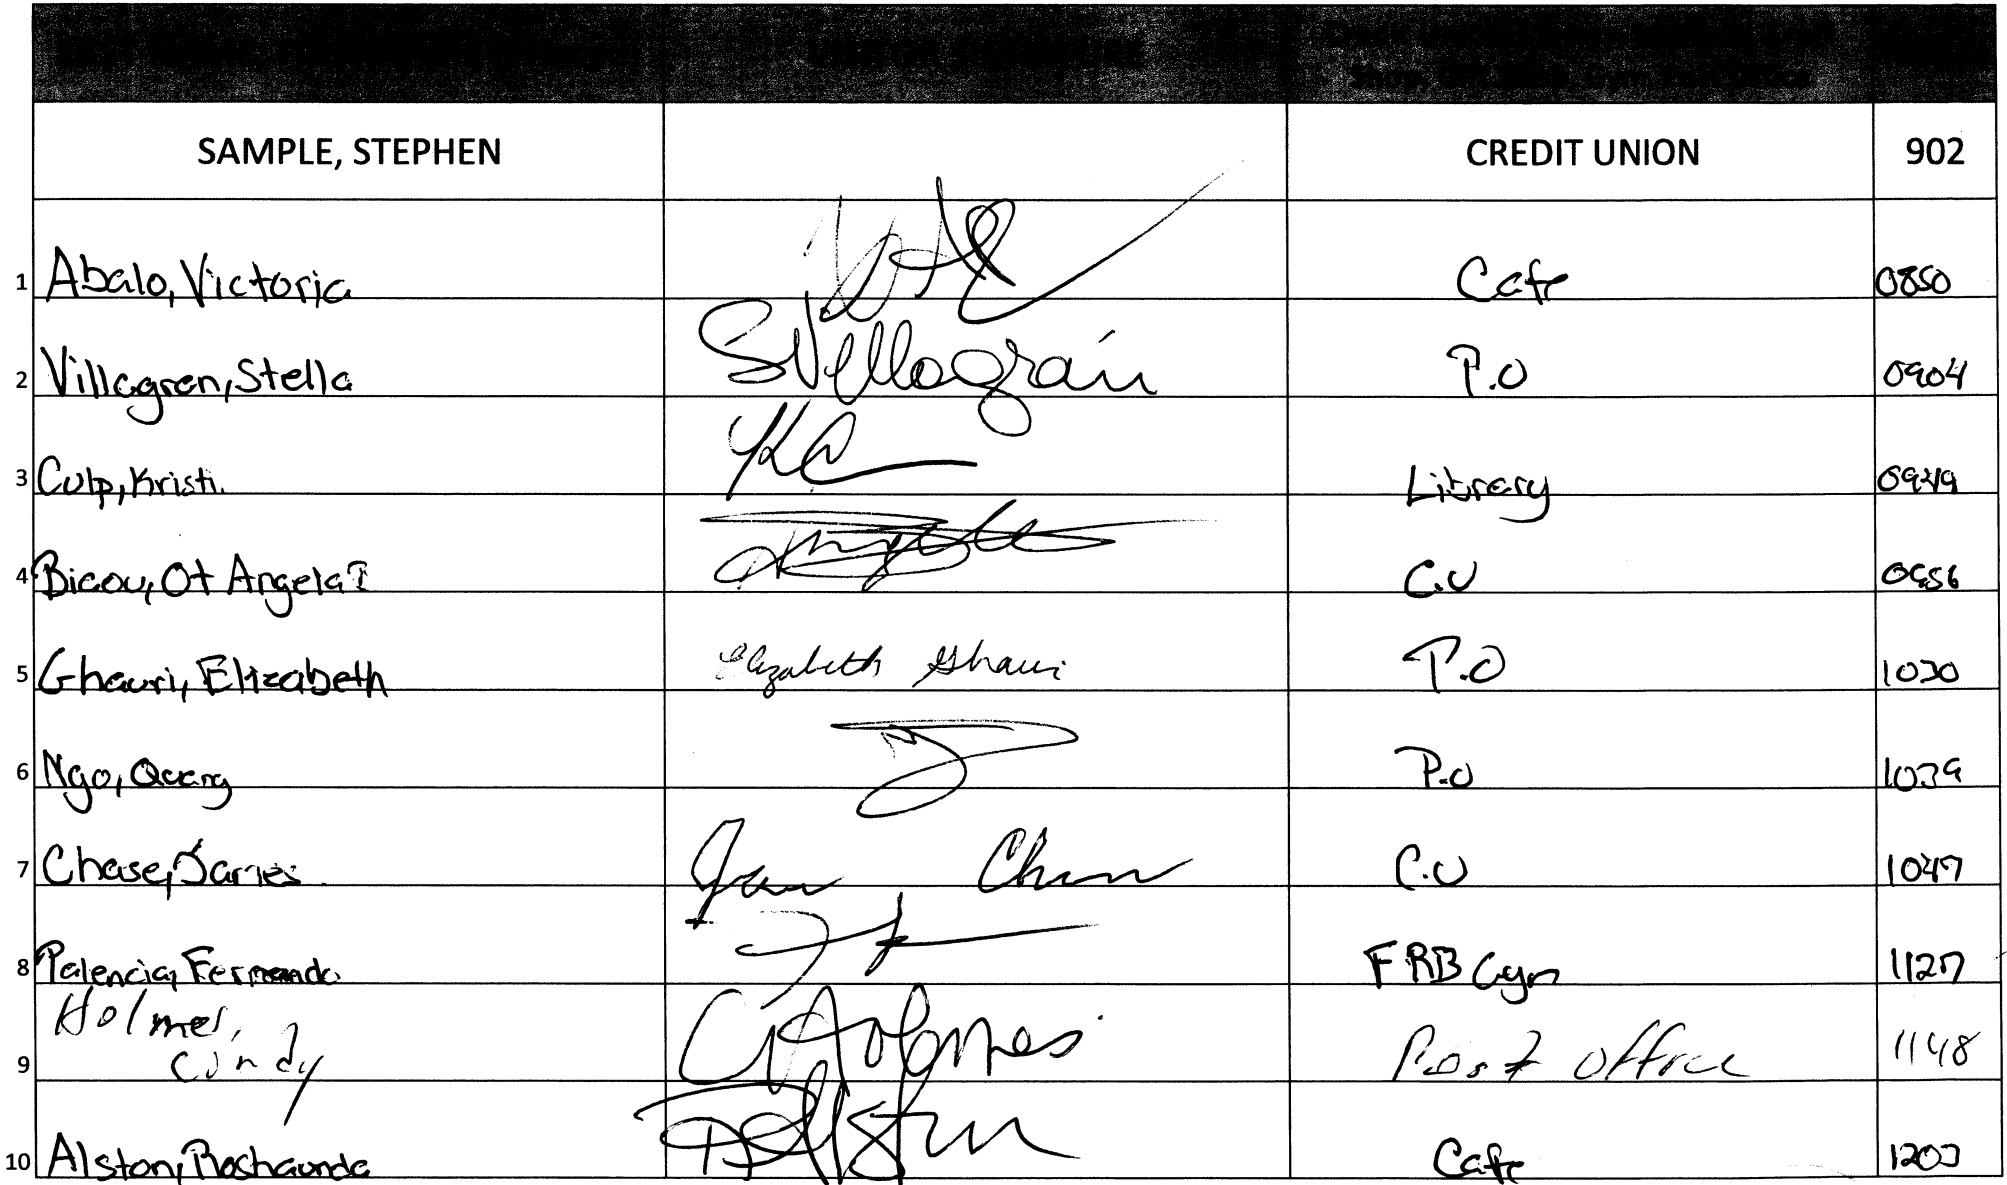 Shop, Gym
SAMPLE, STEPHEN CREDIT UNION 902
1 Abalo, Victoria Cafe 0850
2 Villagran, Stella SVillagrán P.O 0904
3 Culp, Kristi KC Library 0949
4 Bicou, Ot Angela? C.U 0956
5 Ghauri, Elizabeth Elizabeth Ghauri P.O 1030
6 Ngo, Quang P.O 1039
7 Chase, James C.U 1047
8 Palencia, Fernando FRB Gym 1127
Holmes,
9 Cindy CHolmes Post Office 1148
10 Alston, Roshaunda Cafe 1203